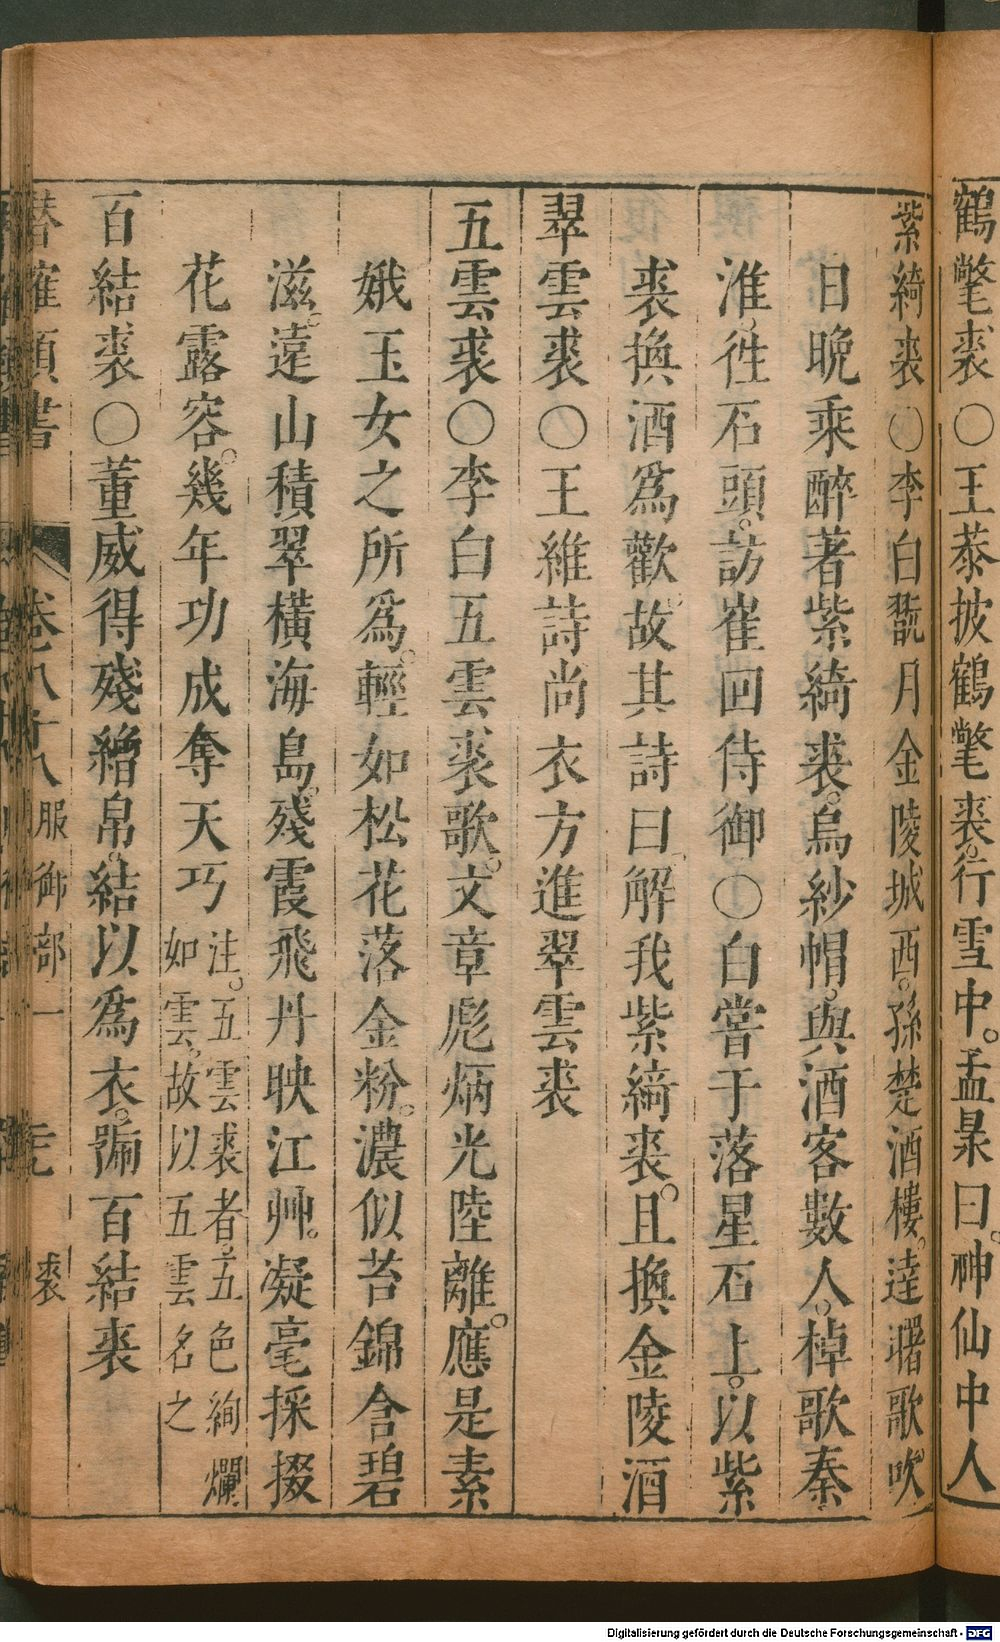 鶴氅裘○王恭披鶴氅裘。行雪中。孟㬎曰。神仙中人
紫綺裘○李白翫月金陵城西。孫楚酒樓。達曙歌吹。
日晚乘醉著紫綺裘。烏紗帽。與酒客數人。棹歌秦
淮。徃石頭。訪崔四侍御○白嘗于落星石上。以紫
裘換酒爲歡。故其詩曰解我紫綺裘。且換金陵酒
翠雲裘○王維詩尚衣方進翠雲裘
五雲裘○李白五雲裘歌。文章彪炳光陸離。應是素
娥玉女之所爲。輕如松花落金粉。濃似苔錦含碧
滋。遠山積翠橫海島。殘霞飛丹映江艸。凝毫採掇
花露容。幾年功成奪天巧注。五雲裘者。五色絢爛
如雲。故以五雲名之
百結裘○董威得殘繒帛。結以爲衣。號百結裘
潛確類書 卷八十八 服御部一 裘
Digitalisierung gefördert durch die Deutsche Forschungsgemeinschaft - DFG